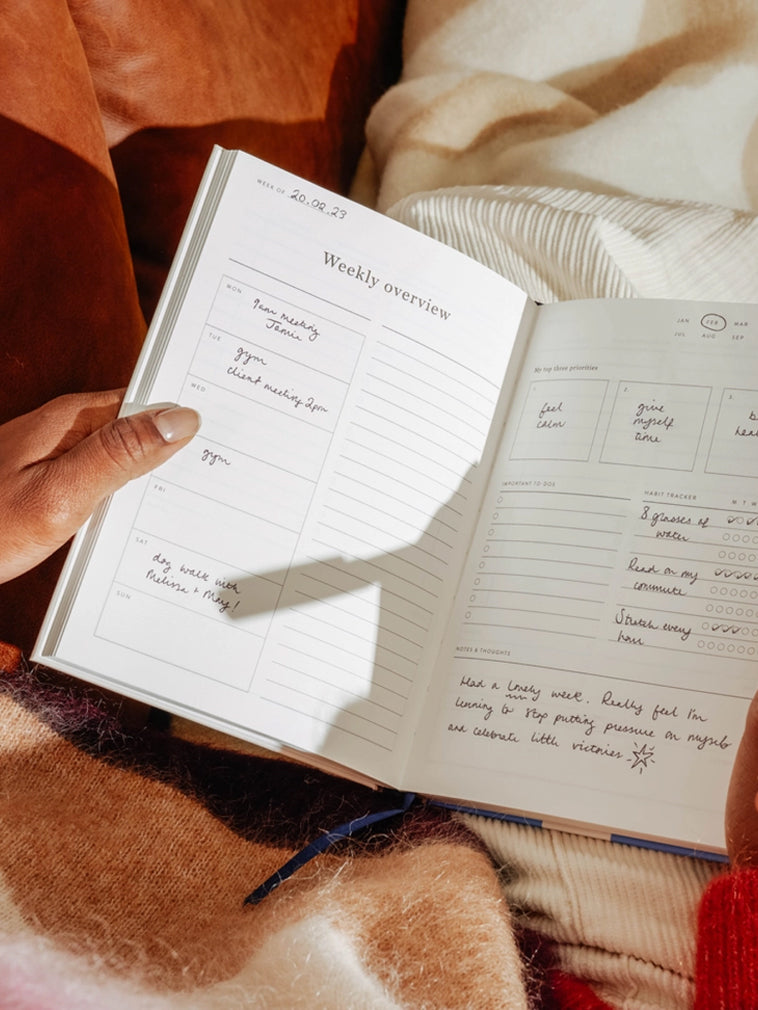 WEEK OF 20.02.23
Weekly overview
MON
9am meeting
Jamie
TUE
gym
client meeting 2pm
WED
gym
FRI
SAT
dog walk with
Melissa + May!
SUN
JAN FEB MAR
JUL AUG SEP
My top three priorities
1.
feel
calm
2.
give
myself
time
3.
IMPORTANT TO DOS
HABIT TRACKER
M T W
8 glasses of
water
Read on my
commute
Stretch every
hour
NOTES & THOUGHTS
Had a lovely week. Really feel I'm
learning to stop putting pressure on myself
and celebrate little victories